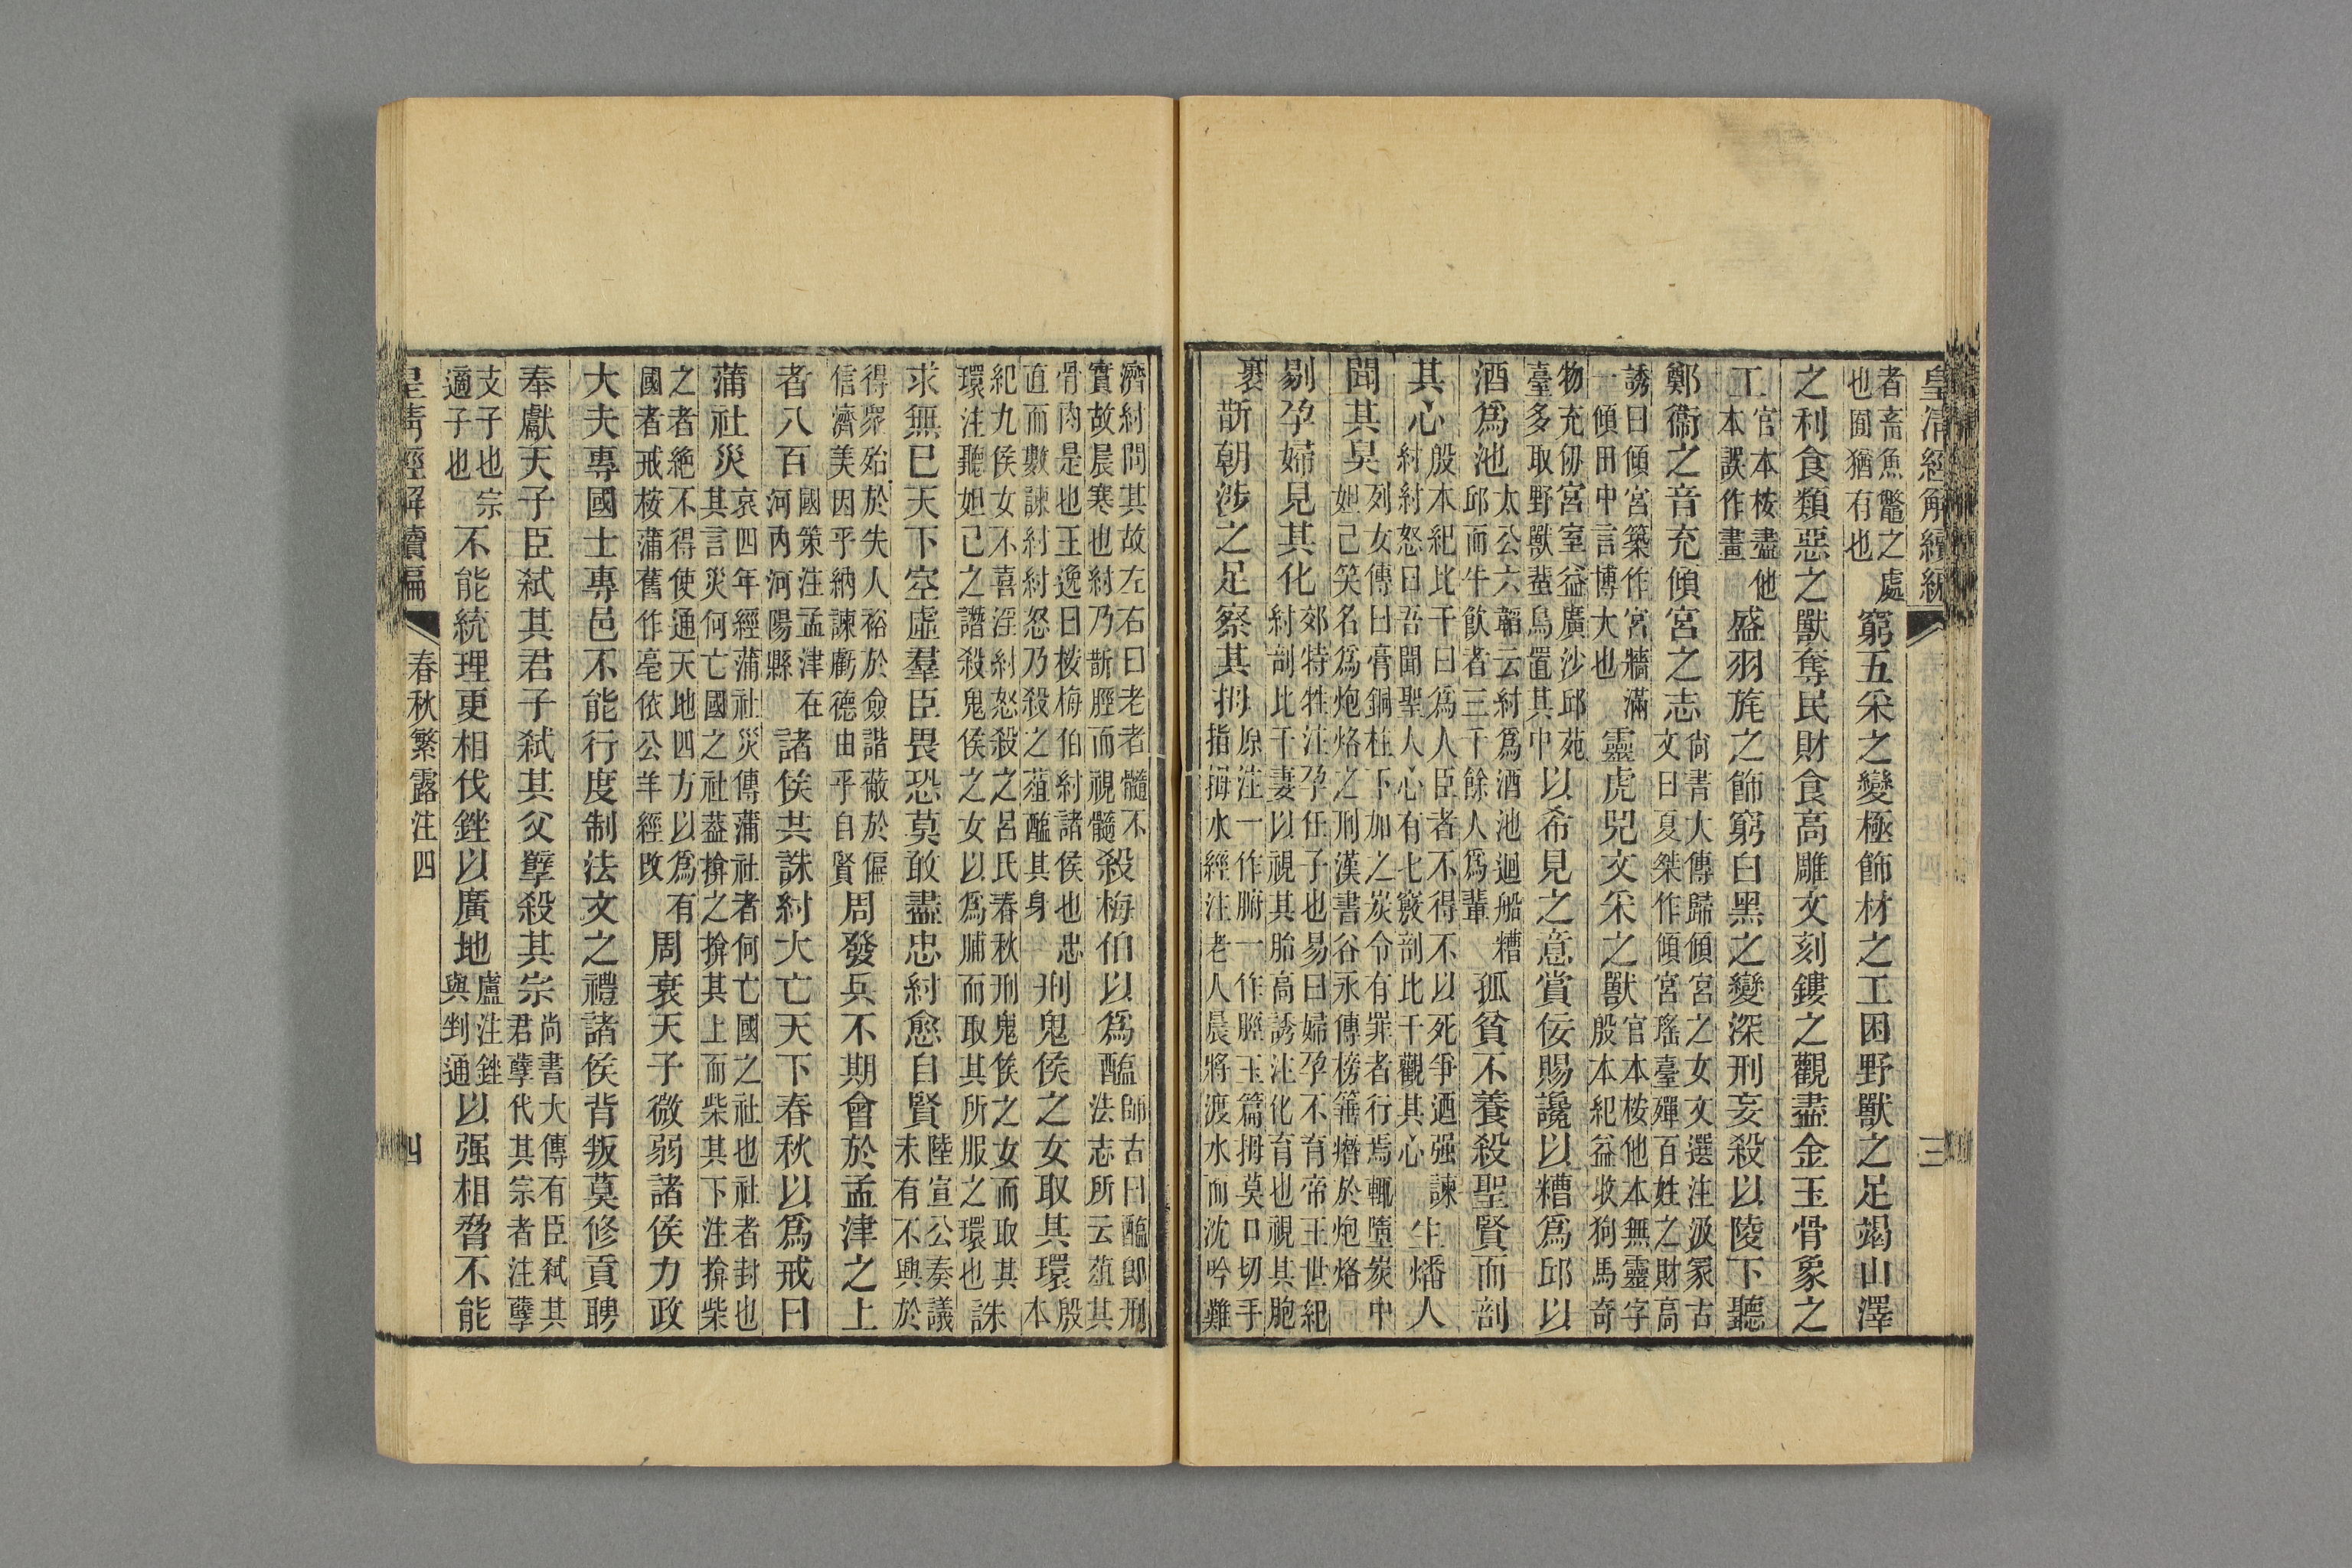 皇清經解續編
三
者畜魚鼈之處也囿猶有也窮五采之變極飾材之工困野獸之足竭山澤
之利食類惡之獸奪民財食高雕文刻鏤之觀盡金玉骨象之
工官本桉盡他本誤作畫盛羽旄之飾窮白黑之變深刑妄殺以陵下聽
鄭衞之音充傾宮之志尙書大傳歸傾宮之女文選注汲冡古文曰夏桀作傾宮瑤臺殫百姓之財高
誘曰傾宮築作宮牆滿一傾田中言博大也靈虎兕文采之獸官本桉他本無靈字殷本紀益收狗馬奇
物充仞宮室益廣沙邱苑臺多取野獸蜚鳥置其中以希見之意賞佞賜讒以糟爲邱以
酒爲池太公六韜云紂爲酒池迴船糟邱而牛飮者三千餘人爲輩孤貧不養殺聖賢而剖
其心殷本紀比干曰爲人臣者不得不以死爭迺强諫紂紂怒曰吾聞聖人心有七竅剖比干觀其心生燔人
聞其臭列女傳曰膏銅柱下加之炭令有罪者行焉輒墮炭中妲己笑名爲炮烙之刑漢書谷永傳榜箠㿊於炮烙
剔孕婦見其化郊特牲注孕任子也易曰婦孕不育帝王世紀紂剖比干妻以視其胎高誘注化育也視其胞
裹斮朝涉之足察其拇原注一作腑一作脛玉篇拇莫口切手指拇水經注老人晨將渡水而沈吟難
濟紂問其故左右曰老者髓不實故晨寒也紂乃斮脛而視髓殺梅伯以爲醢師古曰醢卽刑法志所云葅其
骨肉是也王逸曰桉梅伯紂諸侯也忠直而數諫紂紂怒乃殺之葅醢其身刑鬼侯之女取其環殷本
紀九侯女不喜淫紂怒殺之呂氏春秋刑鬼侯之女而取其環注聽妲己之譖殺鬼侯之女以爲脯而取其所服之環也誅
求無已天下空虛羣臣畏恐莫敢盡忠紂愈自賢陸宣公奏議未有不興於
得衆殆於失人裕於僉諧蔽於偏信濟美因乎納諫虧德由乎自賢周發兵不期會於孟津之上
者八百國策注孟津在河內河陽縣諸侯共誅紂大亡天下春秋以爲戒曰
蒲社災哀四年經蒲社災傳蒲社者何亡國之社也社者封也其言災何亡國之社葢揜之揜其上而柴其下注揜柴
之者絶不得使通天地四方以爲有國者戒桉蒲舊作亳依公羊經改周衰天子微弱諸侯力政
大夫專國士專邑不能行度制法文之禮諸侯背叛莫修貢聘
奉獻天子臣弒其君子弒其父孽殺其宗尙書大傳有臣弒其君孽代其宗者注孽
支子也宗適子也不能統理更相伐銼以廣地盧注銼與剉通以强相脅不能
皇淸經解續編
春秋繁露注四
四